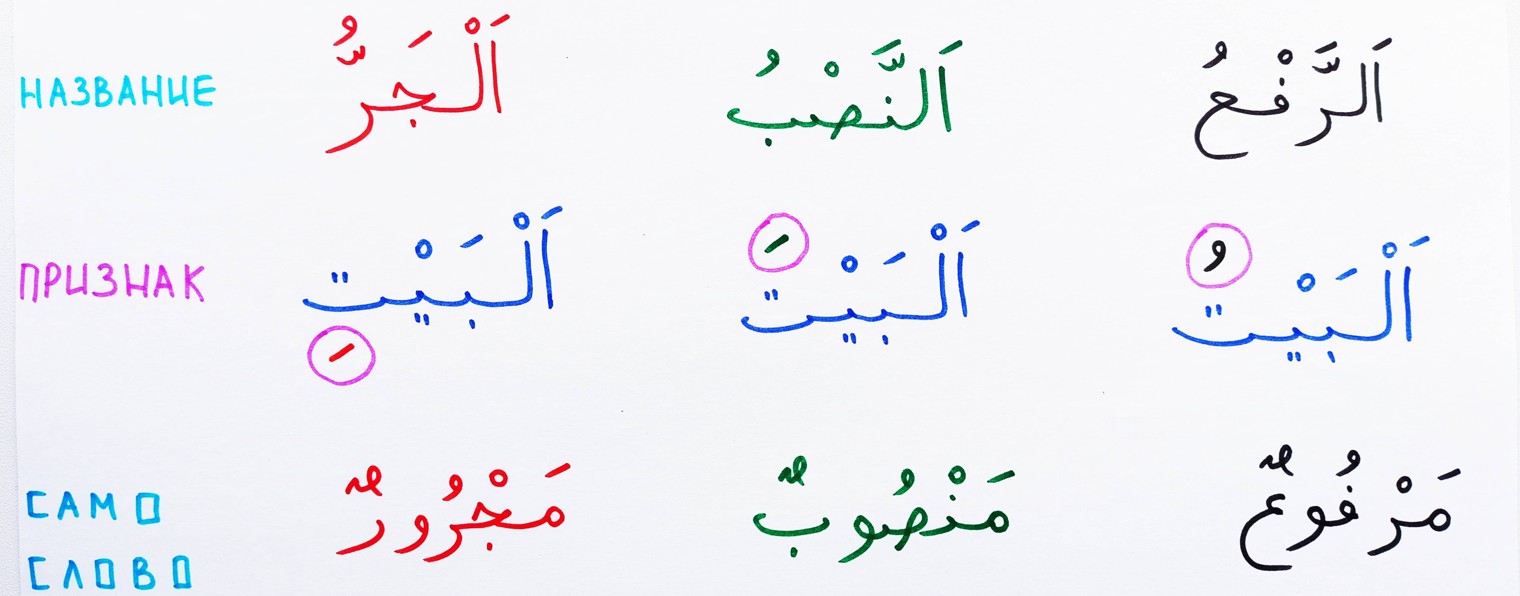 НАЗВАНИЕ اَلْجَرُّ اَلنَّصْبُ اَلرَّفْعُ
ПРИЗНАК اَلْبَيْتِ اَلْبَيْتَ اَلْبَيْتُ
САМО مَجْرُورٌ مَنْصُوبٌ مَرْفُوعٌ
СЛОВО